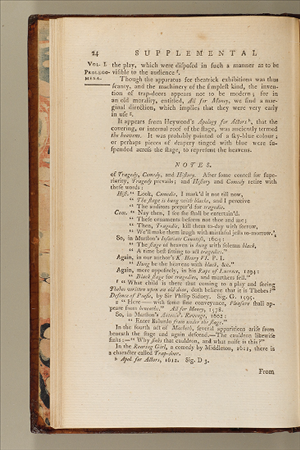 24 SUPPLEMENTAL
VOL. I. the play, which were disposed in such a manner as to be
PROLEGO- visible to the audience ᶠ.
MENA. Though the apparatus for theatrick exhibitions was thus
scanty, and the machinery of the simplest kind, the inven-
tion of trap-doors appears not to be modern; for in
an old morality, entitled, All for Money, we find a mar-
ginal direction, which implies that they were very early
in use ᵍ.
It appears from Heywood's Apology for Actors ʰ, that the
covering, or internal roof of the stage, was anciently termed
the heavens. It was probably painted of a sky-blue colour;
or perhaps pieces of drapery tinged with blue were su-
spended across the stage, to represent the heavens.
NOTES.
of Tragedy, Comedy, and History. After some contest for supe-
riority, Tragedy prevails; and History and Comedy retire with
these words:
Hist. " Look, Comedie, I mark'd it not till now,
" The stage is hung with blacke, and I perceive
" The auditors prepar'd for tragedie.
Com. " Nay then, I see she shall be entertain'd.
" These ornaments beseem not thee and me;
" Then, Tragedie, kill them to-day with sorrow,
" We'll make them laugh with mirthful jests to-morrow."
So, in Marston's Insatiate Countess, 1603:
" The stage of heaven is hung with solemn black,
" A time best fitting to act tragedies."
Again, in our author's K. Henry VI. P. I.
" Hung be the heavens with black, &c."
Again, more appositely, in his Rape of Lucrece, 1594:
" Black stage for tragedies, and murthers fell."
ᶠ " What child is there that coming to a play and seeing
Thebes written upon an old door, doth believe that it is Thebes?"
Defence of Poesie, by Sir Philip Sidney. Sig. G. 1595.
ᵍ " Here—with some fine conveyance, Pleasure shall ap-
peare from beneathe." All for Money, 1578.
So, in Marston's Antonio's Revenge, 1602:
" Enter Balurdo from under the stage."
In the fourth act of Macbeth, several apparitions arise from
beneath the stage and again descend.—The cauldron likewise
sinks:—" Why sinks that cauldron, and what noise is this?"
In the Roaring Girl, a comedy by Middleton, 1611, there is
a character called Trap-door.
ʰ Apol. for Actors, 1612. Sig. D 3.
From